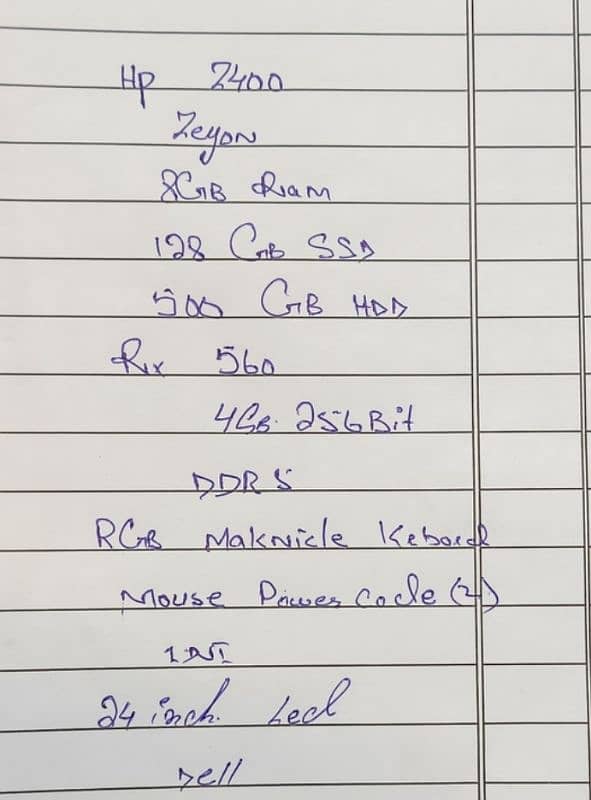 Hp Z400
Zeyon
8GB Ram
128 GB SSD
500 GB HDD
Rx 560
4GB. 256Bit
DDR 5
RGB Maknicle Keboard
Mouse Power Cable (2)
24 inch. Led
Dell